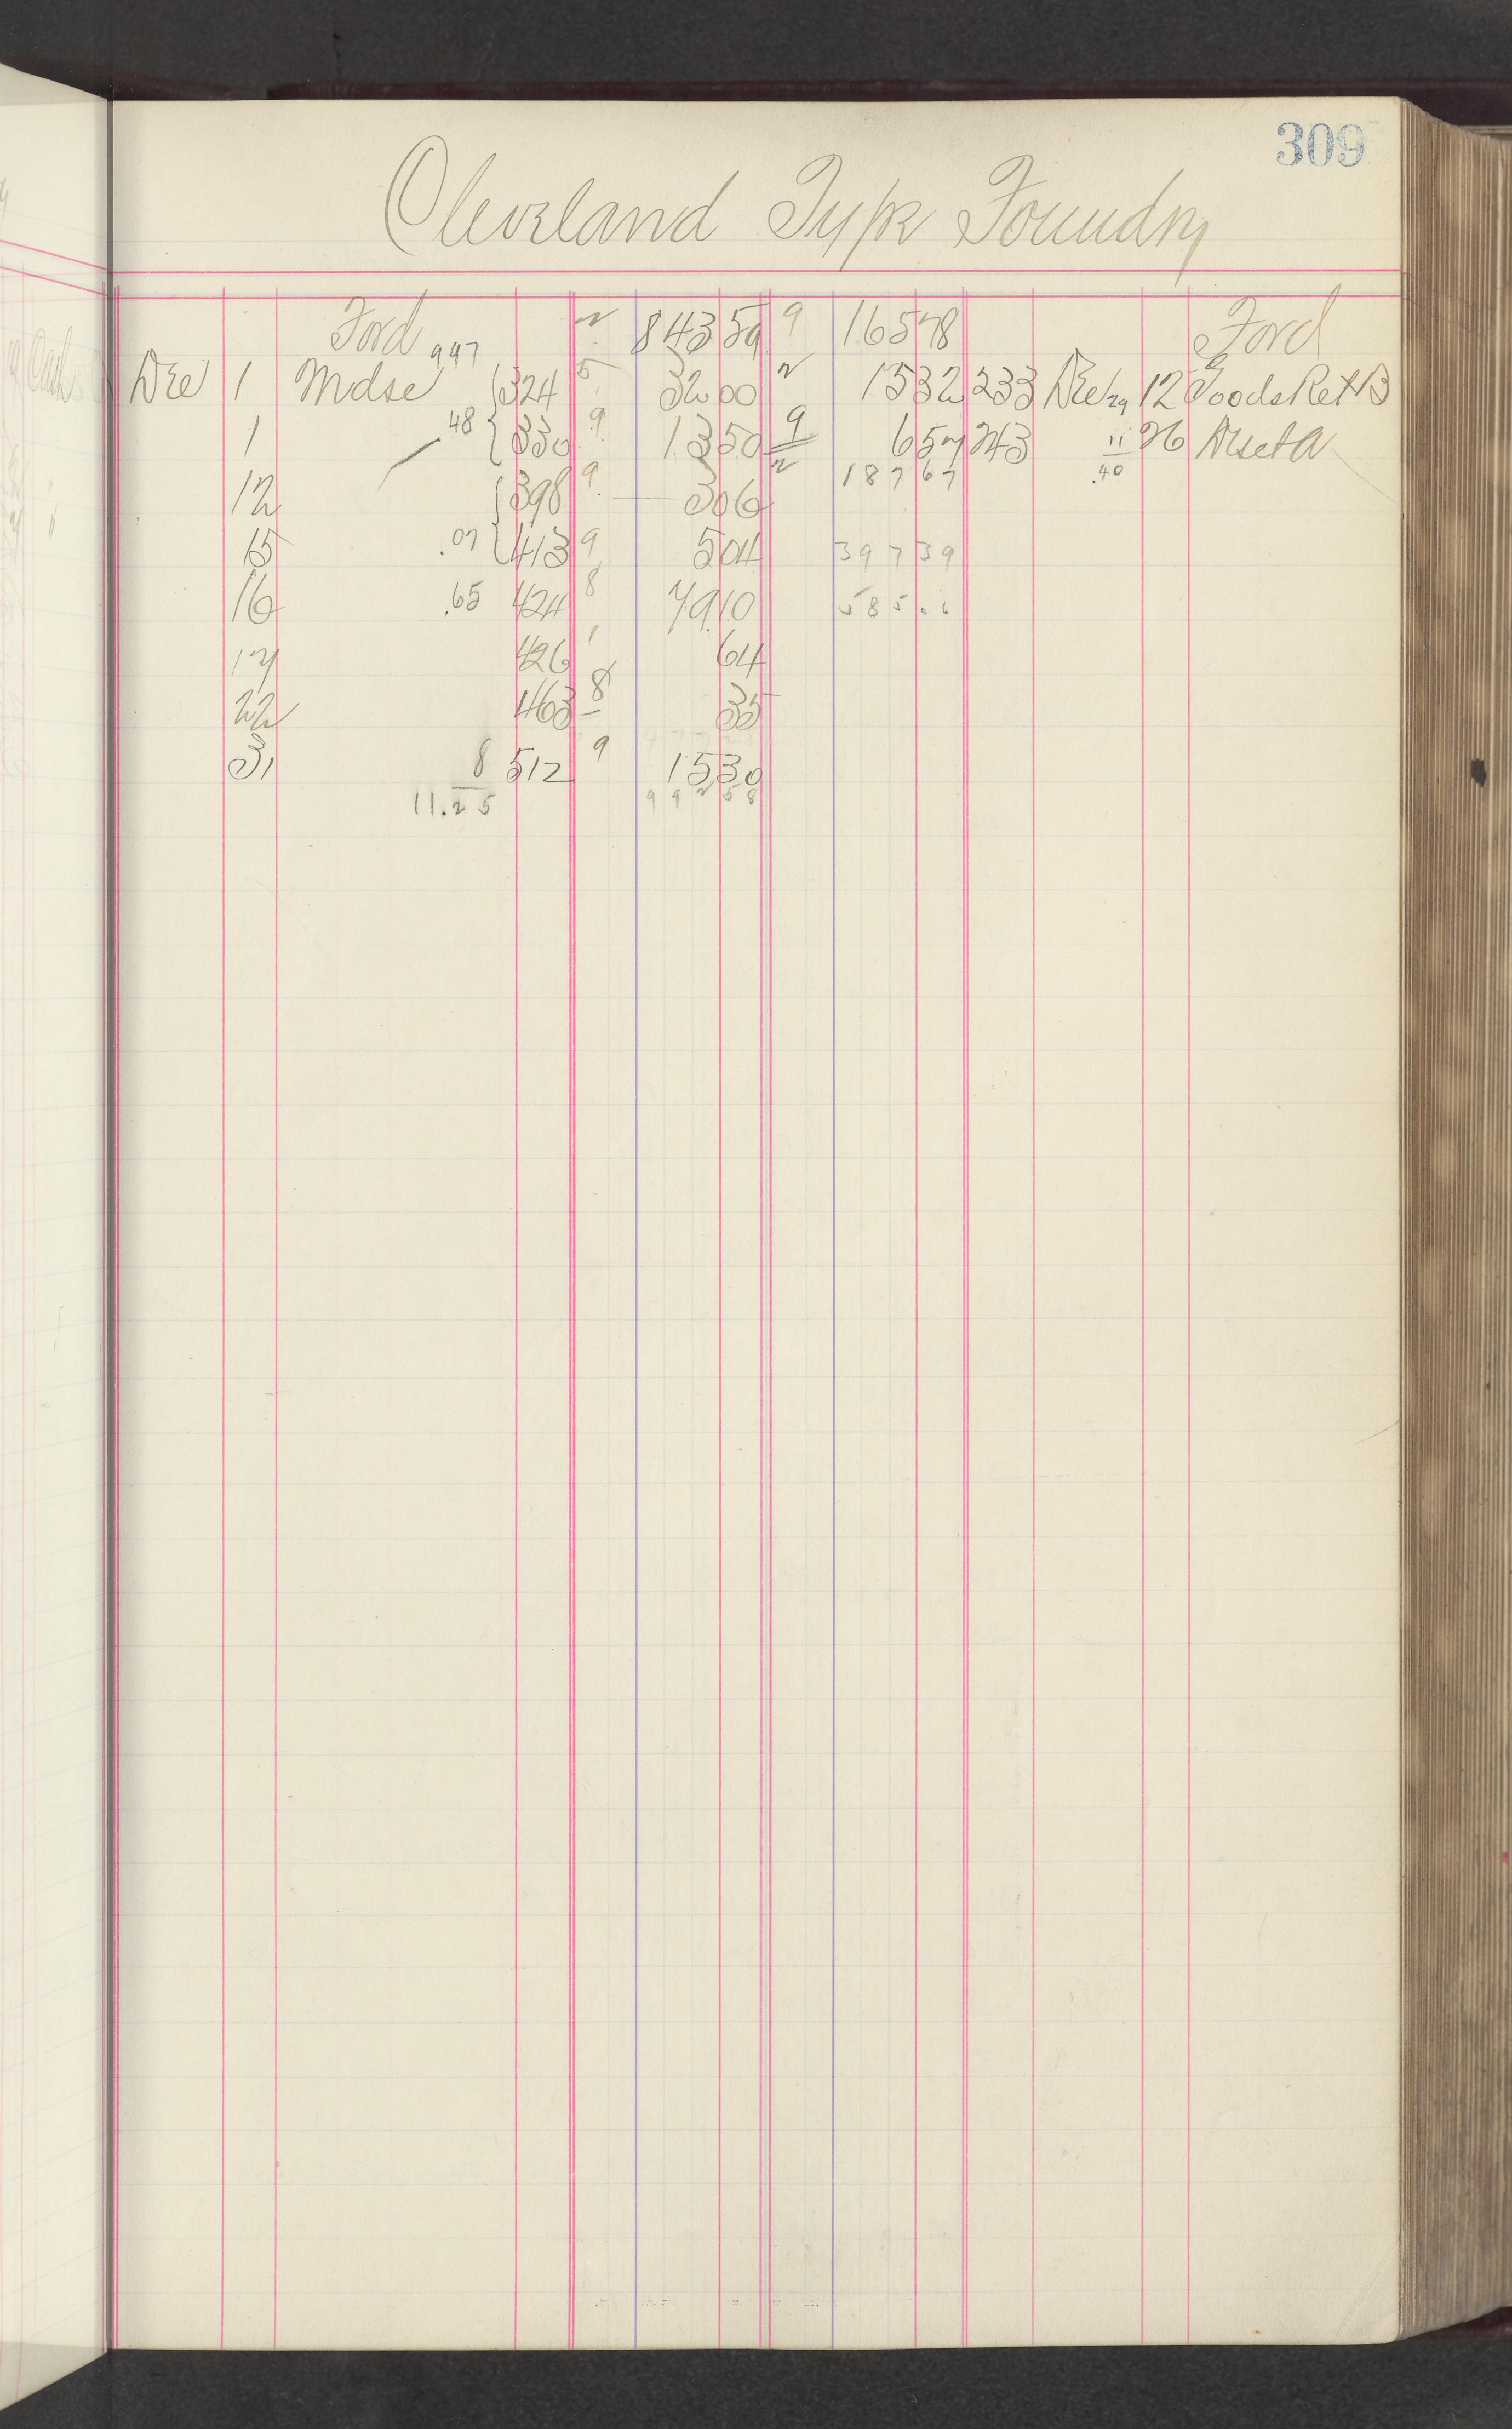 309
Cleveland Type Foundry
Ford 843 59 9 165 78 Ford
997
Dec 1 Mdse 324 5 32 00 15 32 233 Dec 29 12 Goods Ret B
1 48 330 9 13 50 9 6 57 243 11 26 Disct A
187 67 .40
12 398 9 3 06
15 .07 413 9 5 04 397 39
16 .65 424 8 79 10 585
17 426 1 64
22 463 8 35
31 8 512 9 15 30
11.25 992 58